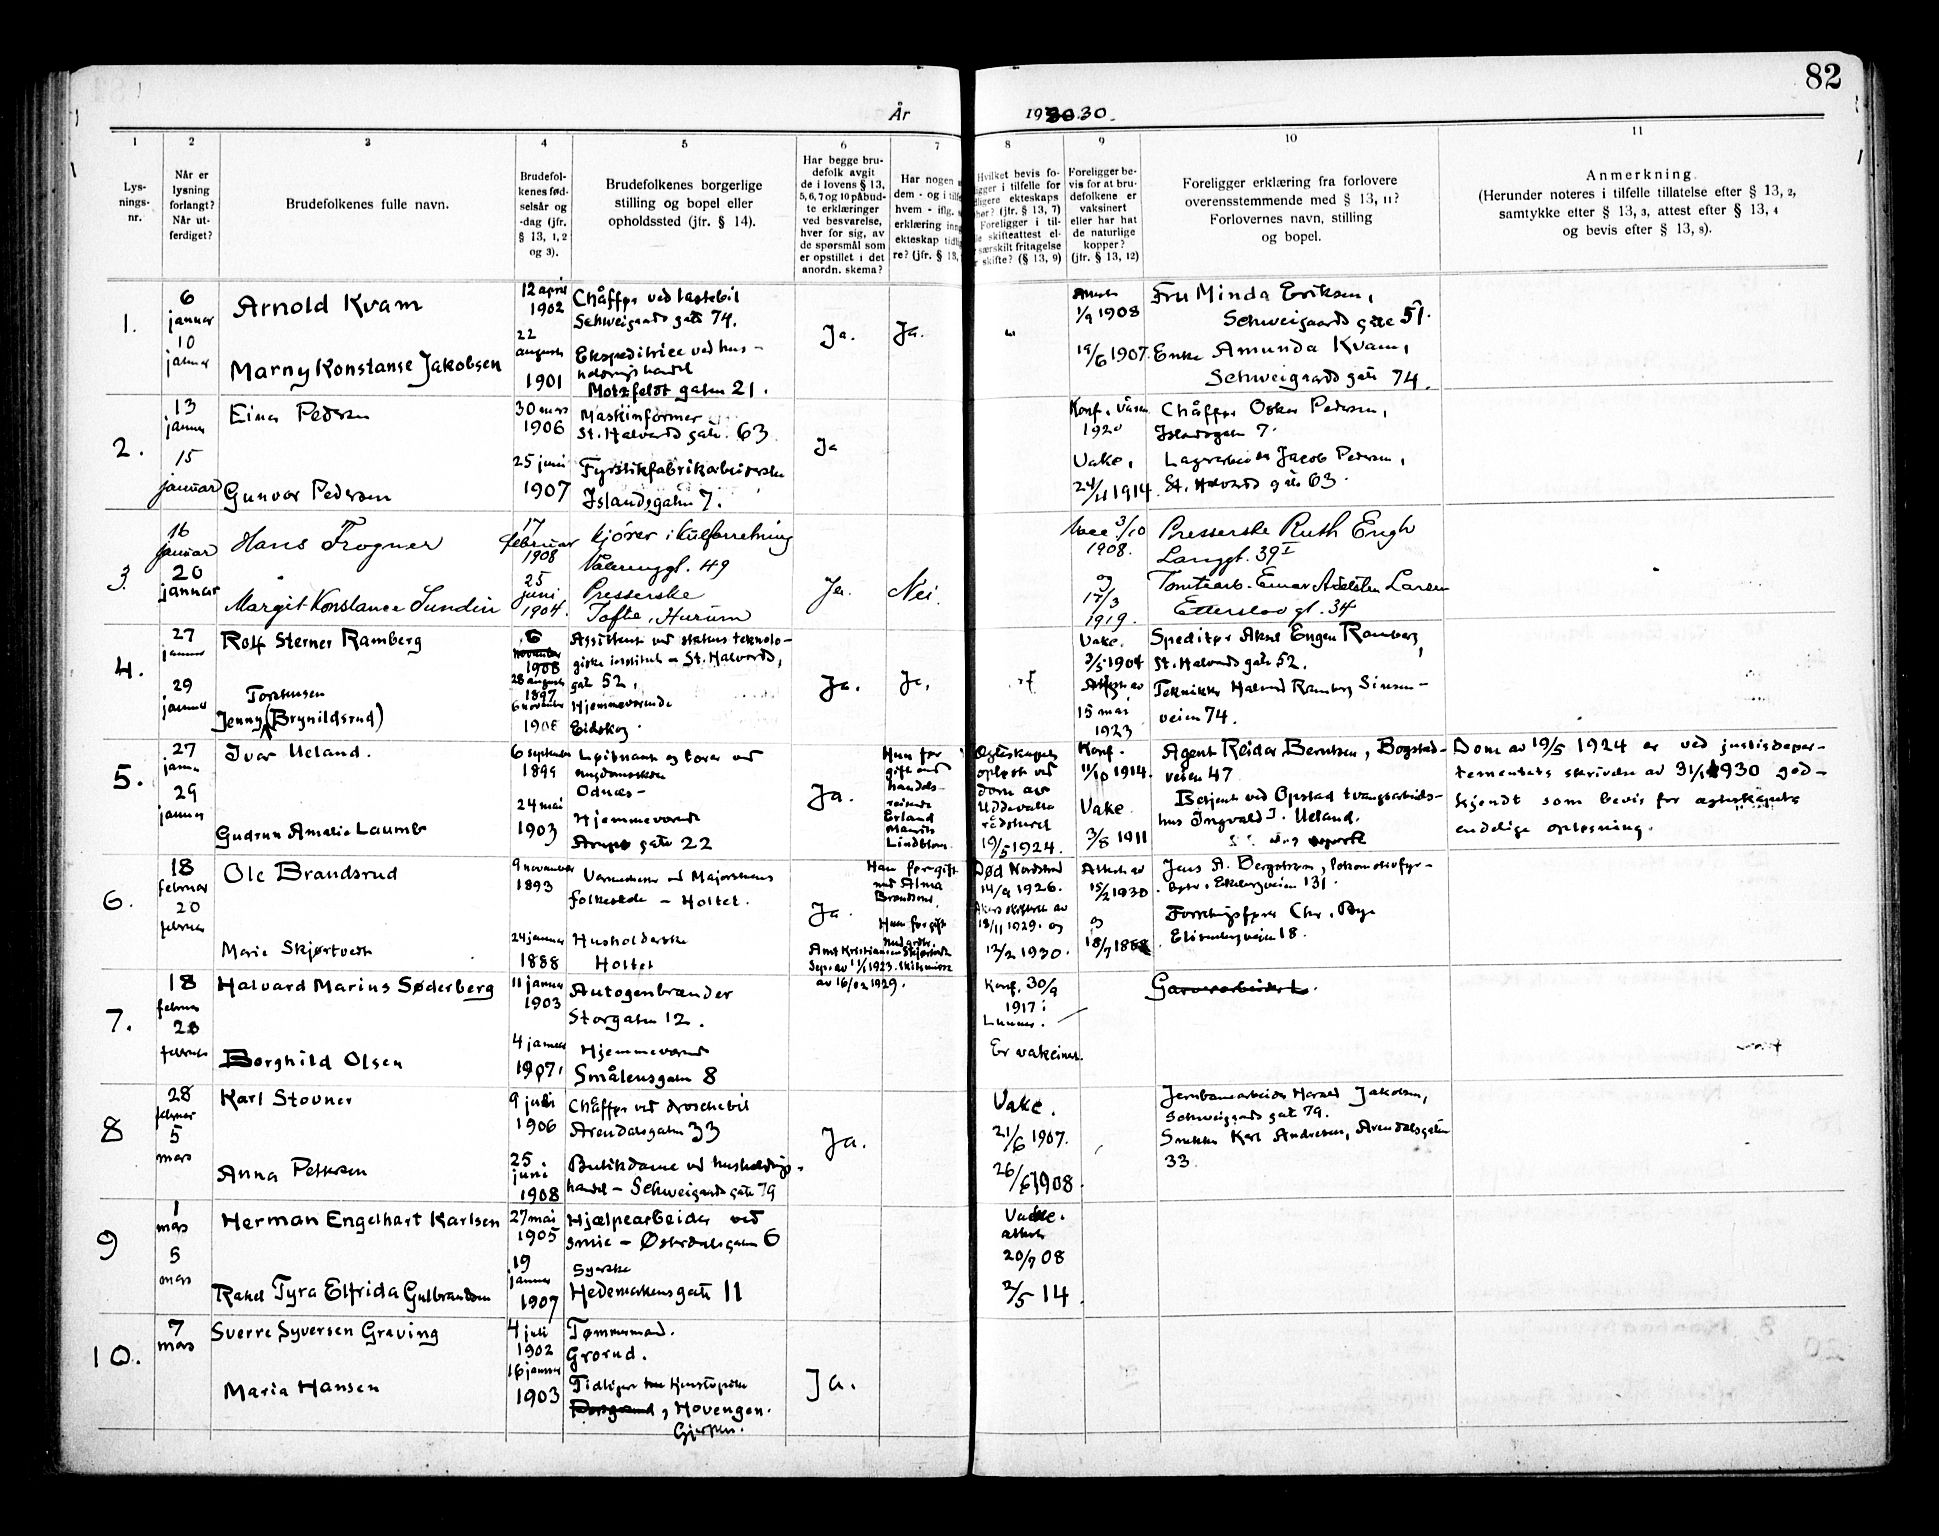 82
År 1930.
1 2 3 4 5 6 7 8 9 10 11
Lys-
nings-
nr.
Når er
lysning
forlangt?
Når ut-
ferdiget?
Brudefolkenes fulle navn.
Brudefol-
kenes fød-
selsår og
-dag (jfr.
§ 13, 1, 2
og 3).
Brudefolkenes borgerlige
stilling og bopel eller
opholdssted (jfr. § 14).
Har begge bru-
defolk avgit
de i lovens § 13,
5, 6, 7 og 10 påbud-
te erklæringer
ved besvarelse,
hver for sig, av
de spørsmål som
er opstillet i det
anordn. skema?
Har nogen
dem - og i
hvem - iflg.
erklæring
ekteskap
re? (jfr. § 13,
Hvilket bevis fo-
ligger i tilfelle for
ekteskaps
(jfr. § 13, 7)
Foreligger i til-
skifteattest el-
særskilt fritagelse
skifte? (§ 13, 9)
Foreligger be-
vis for at bru-
defolkene er
vaksinert
eller har hat
de naturlige
kopper?
(jfr. § 13, 12)
Foreligger erklæring fra forlovere
overensstemmende med § 13, 11?
Forlovernes navn, stilling
og bopel.
Anmerkning.
(Herunder noteres i tilfelle tillatelse efter § 13, 2,
samtykke efter § 13, 3, attest efter § 13, 4
og bevis efter § 13, 8).
1.
6
januar
10
januar
Arnold Kvam
Marny Konstanse Jakobsen
12 april
1902
22
august
1901
Chåffør ved lastebil
Schweigaards gate 74.
Ekspeditrice ved hus-
holdnings handel
Motzfeldt gaten 21.
Ja.
Ja.
Attest
1/9 1908
19/6 1907.
Fru Minda Eriksen,
Schweigaards gate 51.
Enke Amunda Kvam,
Schweigaards gate 74.
2.
13
januar
15
januar
Einar Pedersen
Gunvor Pedersen
30 mars
1906
25 juni
1907
Maskinformer
St. Halvards gate. 63
Fyrstikfabrikarbeiderske
Islandsgaten 7.
Ja
Konf.
1920
Vaks.
1914.
Chåffør Oskar Pedersen,
Islandsgaten 7.
Lagerarbeider Jacob Pedersen,
St. Halvards gate 63.
3.
16
januar
20
januar
Hans Frogner
Margit Konstance Sundin
17
februar
1908
25
juni
1904.
Kjører i kulforretning
Vålerenggt. 49
Presserske
Tofte, Hurum
Ja.
Nei.
Vacc 3/10
1908.
og
17/3
1919.
Presserske Ruth Engh
Langgt. 39 I
Tomtearb. Einar Adelsten Larsen
Etterstad gt. 34
4.
27
januar
29
januar
Rolf Sterner Ramberg
Torstensen
Jenny (Brynildsrud)
6
november
1908
28 august
1897
6 november
1908
Assistent ved statens teknolo-
giske institut - St. Halvards
gate 52.
Hjemmeværende
Eidskog.
Ja.
Ja.
Vaks.
3/5 1904
Attest av
15 mai
1923
Speditør Aksel Engen Ramberg,
St. Halvards gate 52.
Tekniker Halvard Ramberg Sinsen-
veien 74.
5.
27
januar
29
januar
Ivar Ueland.
Gudrun Amalie Laumb
6 september
1899
24 mai
1903
Løitnant og lærer ved
ungdomsskole
Odnæs-
Hjemmeværende
Arups gate 22
Ja.
Hun før
gift med
handels-
reisende
Erland
Maurits
Lindblom.
Ægteskapet
opløst ved
dom av
Uddevalla
rådsturet
19/5 1924.
Konf.
11/10 1914.
Vaks.
3/8 1911
Agent Reidar Berntsen, Bogstad-
veien 47
Betjent ved Opstad tvangsarbeids-
hus Ingvald I. Ueland.
Dom av 19/5 1924 er ved justisdepar-
tementets skrivelse av 31/1 1930 god-
kjendt som bevis for ægteskapets
endelige opløsning.
6.
18
februar
20
februar
Ole Brandsrud
Marie Skjørtvedt
9 november
1893
24 januar
1888
Varmemester ved Majorstuens
folkeskole - Holtet.
Husholderske
Holtet
Ja.
Han før gift
med Alma
Brandsrud.
Hun før gift
med grdbr.
Amt Kristiansen Skjørtvedt
Sep. av 11/1 1923. Skilsmisse
av 16/02 1929.
Død Nordstrand
14/9 1926.
Akers skifteret av
18/11 1929. og
12/2 1930.
Attest av
15/2 1930
og
18/7 1888
Jens A. Bergstrøm, lokomotivfyr-
bøter, Ekebergveien 131.
Forretningsfører Chr. Bye
Elisenbergveien 18.
7.
18
februar
28
februar
Halvard Marius Søderberg
Borghild Olsen
11 januar
1903
4 januar
1907.
Autogenbrænder
Storgaten 12.
Hjemmeværende
Smålensgaten 8
Konf. 30/9
1917 i
Lunner.
Er vaksinert.
8
28
februar
5
mars
Karl Stovner
Anna Pettersen
9 juli
1906
25
juni
1908
Chåffør ved droschebil
Arendalsgaten 33
Butikdame ved husholdnings-
handel - Schweigaards gate 79
Ja.
Vaks.
21/6 1907.
26/6 1908.
Jernbanearbeider Harald Jakobsen,
Schweigaards gate 79.
Snekker Karl Andresen, Arendalsgaten
33.
9
1
mars
5
mars
Herman Engelhart Karlsen
Rakel Tyra Elfrida Gulbrandsen
27 mai
1905
19
januar
1907
Hjælpearbeider ved
smie - Østerdalsgaten 6
Syerske
Hedemarkensgate 11
Vakse.
attest
20/9 08
2/5 14.
10.
7
mars
Sverre Syversen Graving
Maria Hansen
4 juli
1902
16 januar
1903
Tømmermand.
Grorud.
Tidligere
Hovengen.
Gjerpen.
Ja.